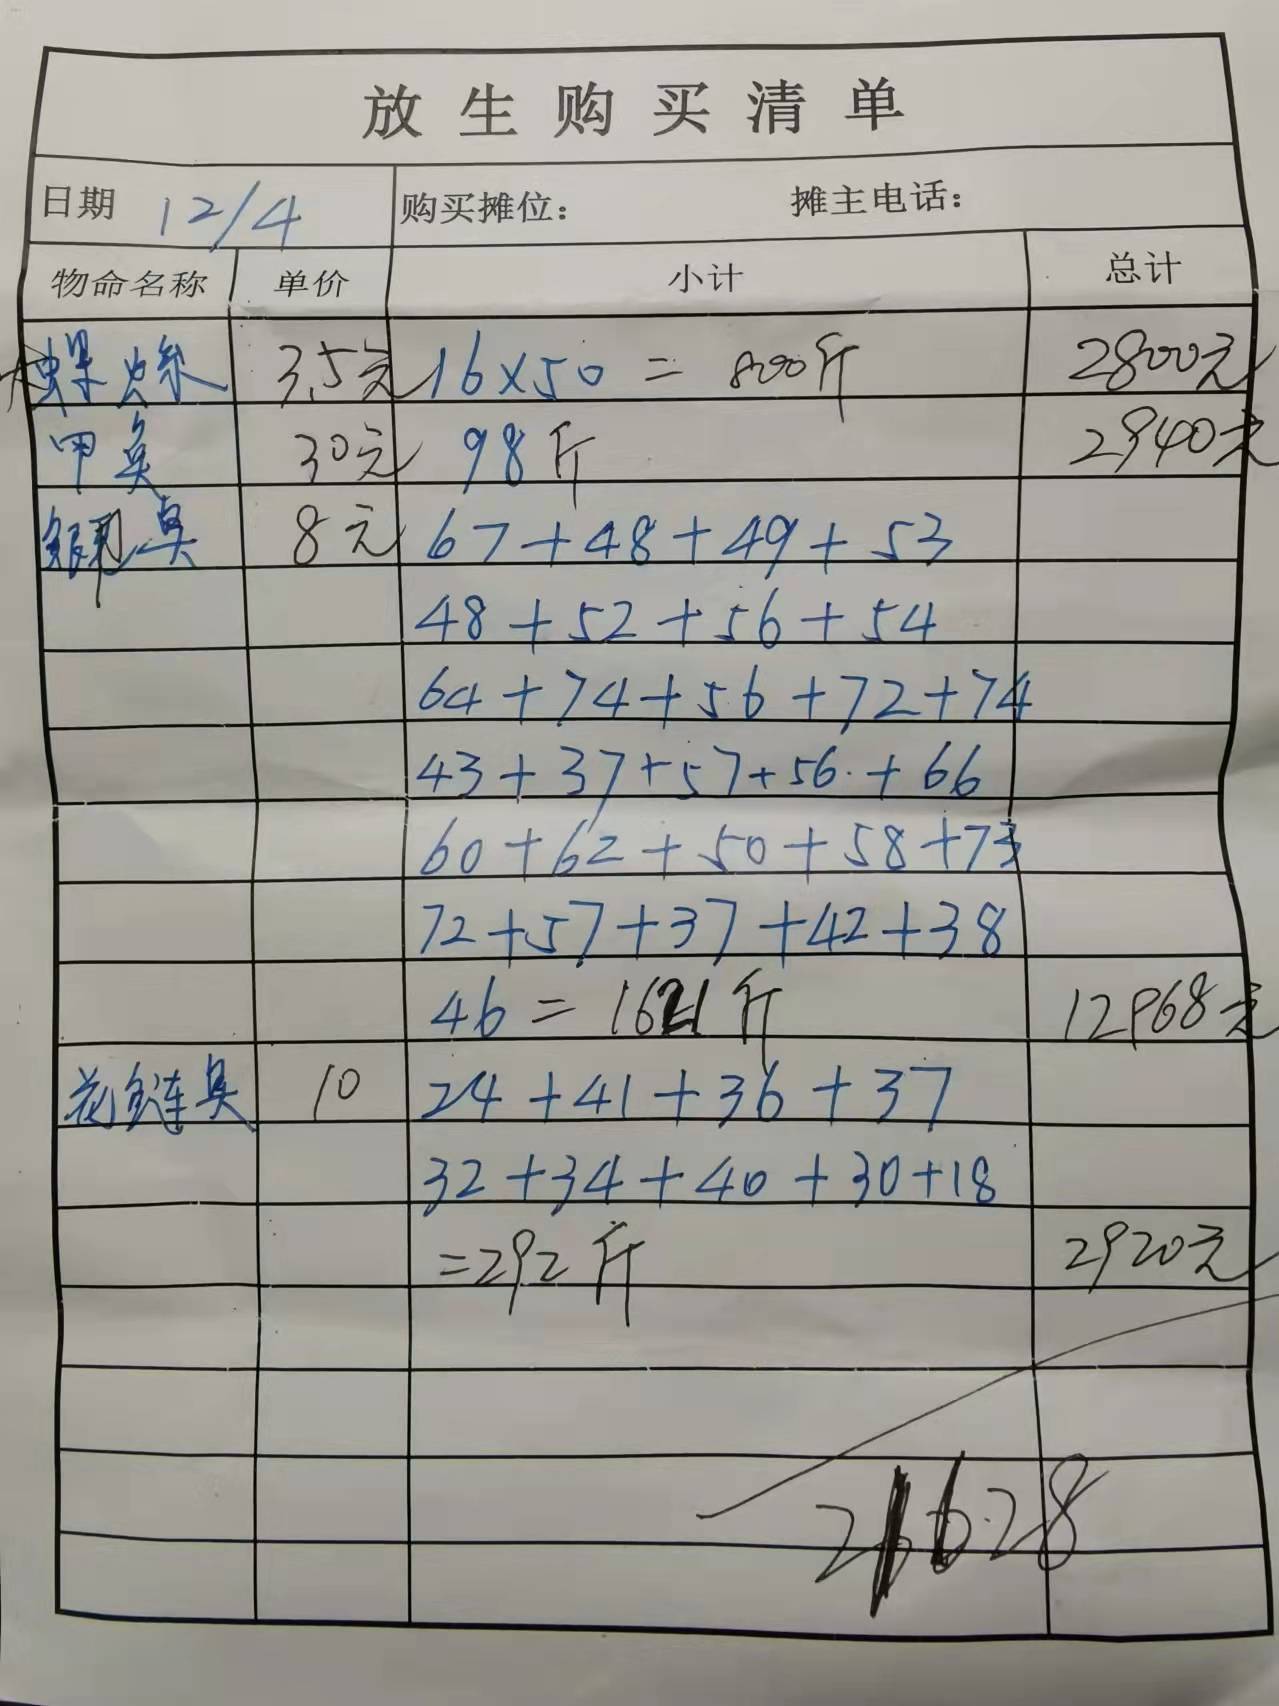 放生购买清单
日期 12/4 购买摊位： 摊主电话：
物命名称 单价 小计 总计
3.5元 16×50 = 800斤 2800元
甲鱼 30元 98斤 2940元
鱼 8元 67+48+49+53
48+52+56+54
64+74+56+72+74
43+37+57+56+66
60+62+50+58+73
72+57+37+42+38
46 = 1621斤 12968元
花鲢鱼 10 24+41+36+37
32+34+40+30+18
=292斤 2920元
21628